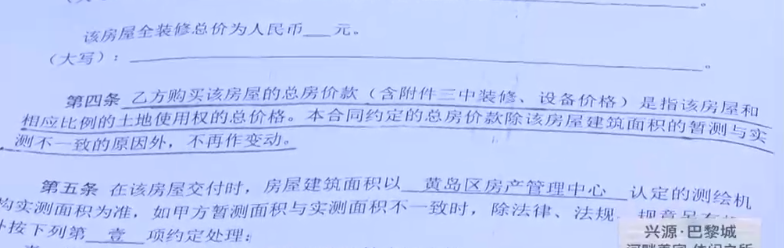 该房屋全装修总价为人民币___元。
（大写）：______。
第四条 乙方购买该房屋的总房价款（含附件三中装修、设备价格）是指该房屋和
相应比例的土地使用权的总价格。本合同约定的总房价款除该房屋建筑面积的暂测与实
测不一致的原因外，不再作变动。
第五条 在该房屋交付时，房屋建筑面积以 黄岛区房产管理中心 认定的测绘机
构实测面积为准，如甲方暂测面积与实测面积不一致时，除法律、法规、规章
按下列第 壹 项约定处理：
兴源·巴黎城